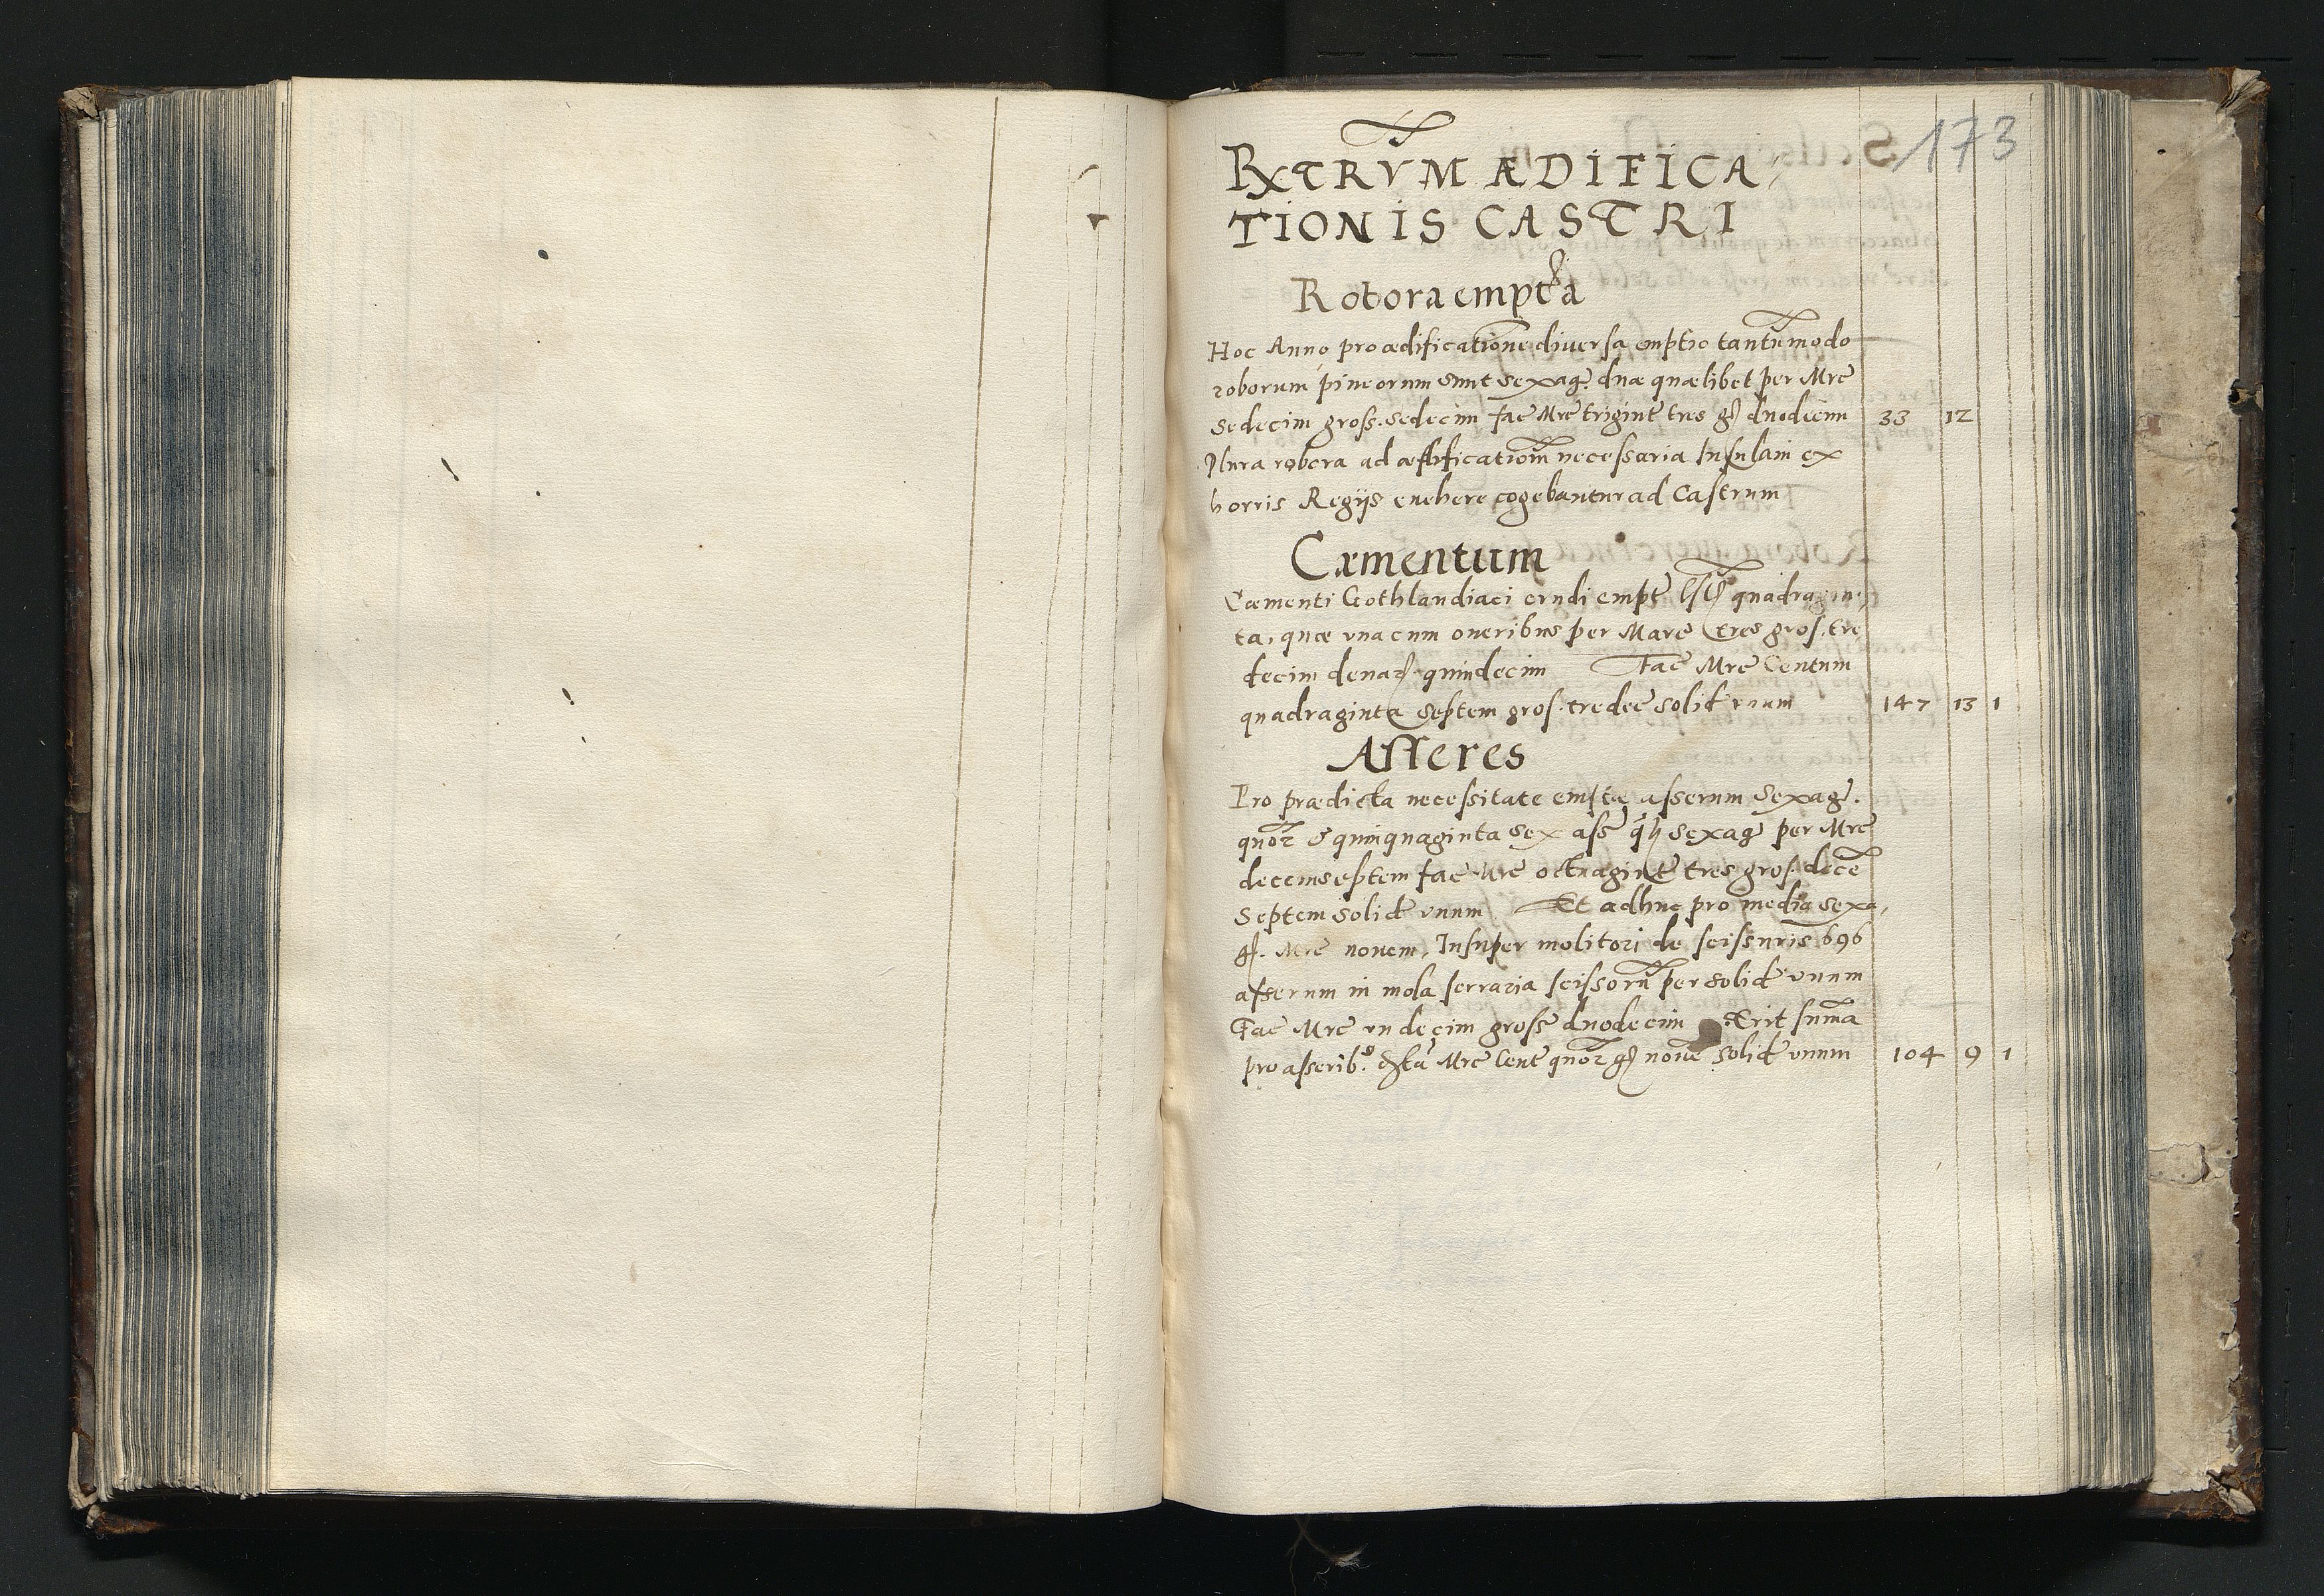 173
RXTRVM ÆDIFICA-
TIONIS CASTRI
Robora empta
Hoc Anno pro ædificatione diversa emptio tantummodo
roborum pineorum sunt sexag. duæ quælibet per Mrc
sedecim gross. sedecim fac Mrc trigint tres gß duodecim 33 12
robora ad ædificationem necessaria Insulam ex
horris Regijs evehere cogebantur ad Castrum
Cæmentum
Cæmenti Gothlandiaci crudi empt lßß quadragin-
ta, quæ vna cum oneribus per Mare tres gros. tre
decim denar quindecim fac Mrc Centum
quadraginta septem gros. tredec solid vnum 147 13 1
Asseres
Pro prædicta necessitate emptæ asserum sexag.
quor & quinquaginta sex ass qlj sexag per Mrc
decemseptem fac Mrc octuagint tres gros. decem
septem solid vnum Et adhuc pro media sexa-
g. Mrc novem, Insuper molitori de scissuris 696
asserum in mola serraria scissorum per solid vnum
Fac Mrc vndecim gross duodecim Erit summa
pro asserib9. Mrc Cent quor gß novem solid vnum 104 9 1